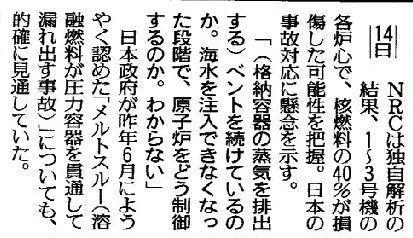 14日
NRCは独自解析の
結果、1〜3号機の
各炉心で、核燃料の40%が損
傷した可能性を把握。日本の
事故対応に懸念を示す。
「(格納容器の蒸気を排出
する)ベントを続けているの
か。海水を注入できなくなっ
た段階で、原子炉をどう制御
するのか。わからない」
日本政府が昨年6月によう
やく認めた「メルトスルー(溶
融燃料が圧力容器を貫通して
漏れ出す事故)」についても、
的確に見通していた。